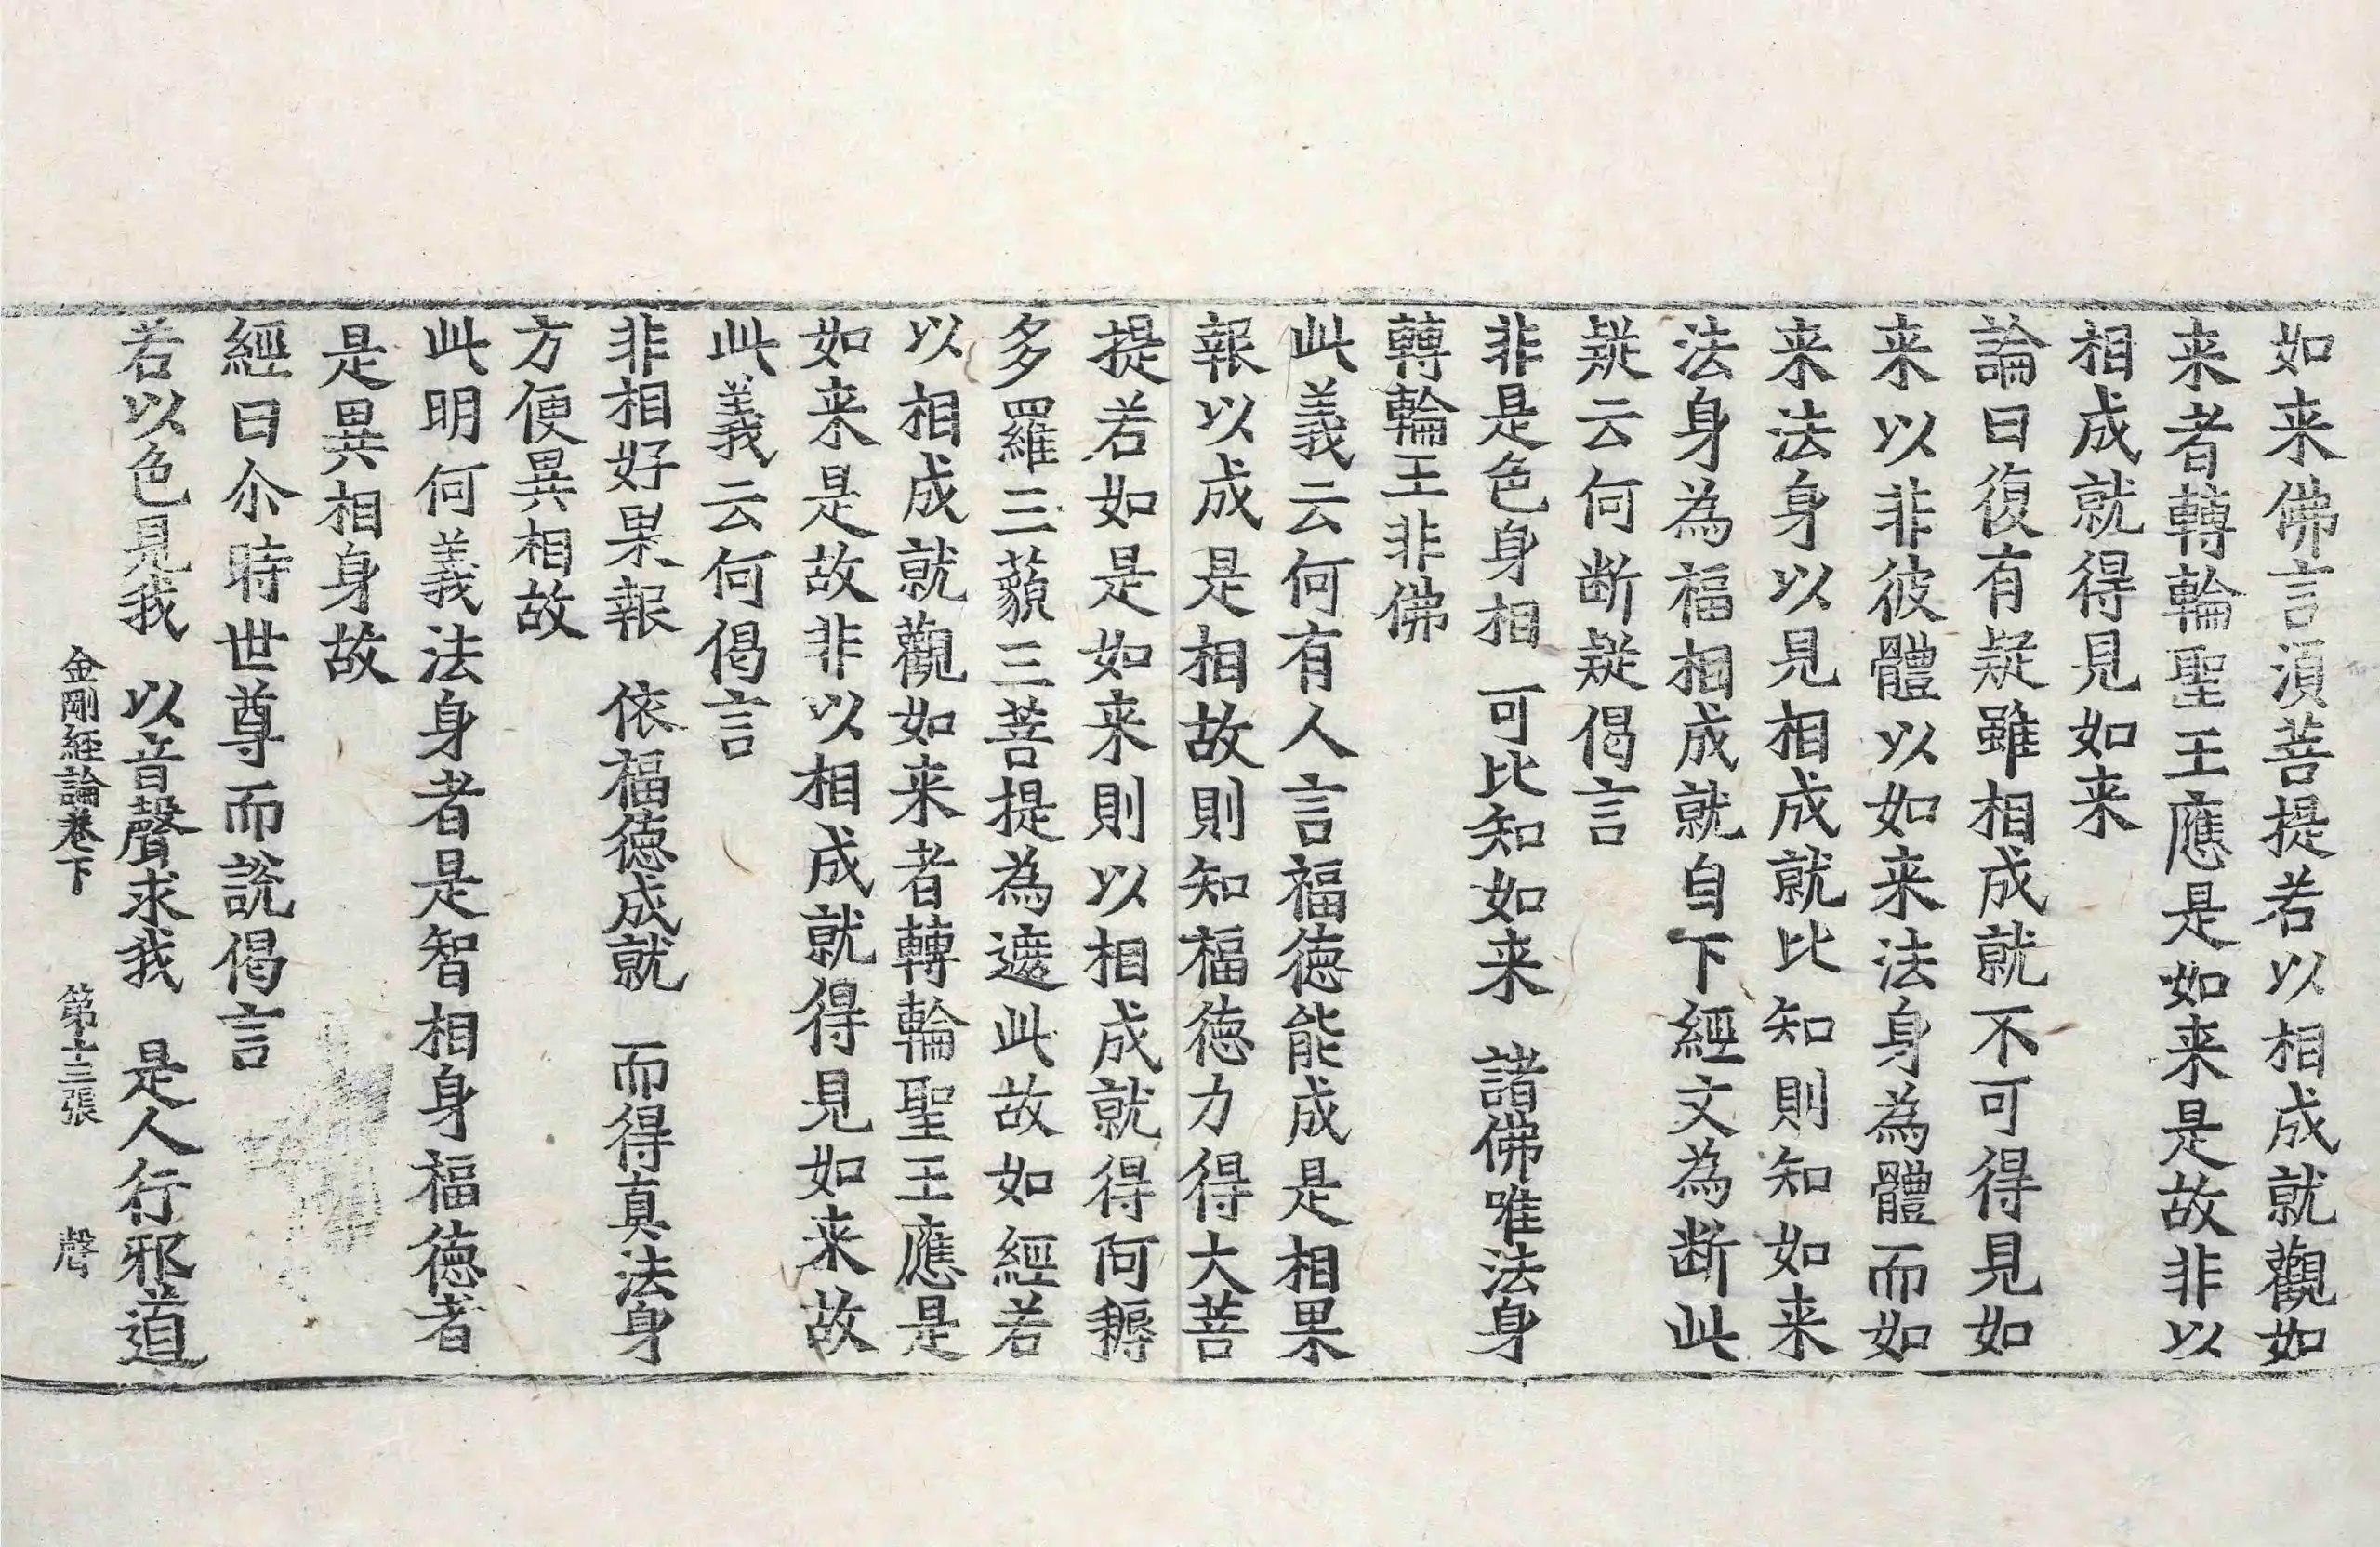 如来佛言湏菩提若以相成就觀如
来者轉輪聖王應是如来是故非以
相成就得見如来
論曰復有疑雖相成就不可得見如
来以非彼體以如来法身為體而如
来法身以見相成就比知則知如来
法身為福相成就自下經文為断此
疑云何断疑偈言
非是色身相　可比知如来　諸佛唯法身
轉輪王非佛
此義云何有人言福德能成是相果
報以成是相故則知福德力得大菩
提若如是如来則以相成就得阿耨
多羅三藐三菩提為遮此故如經若
以相成就觀如来者轉輪聖王應是
如来是故非以相成就得見如来故
此義云何偈言
非相好果報　依福德成就　而得真法身
方便異相故
此明何義法身者是智相身福德者
是異相身故
經曰尒時世尊而說偈言
若以色見我　以音聲求我　是人行邪道
金剛經論卷下　第十三張　聲